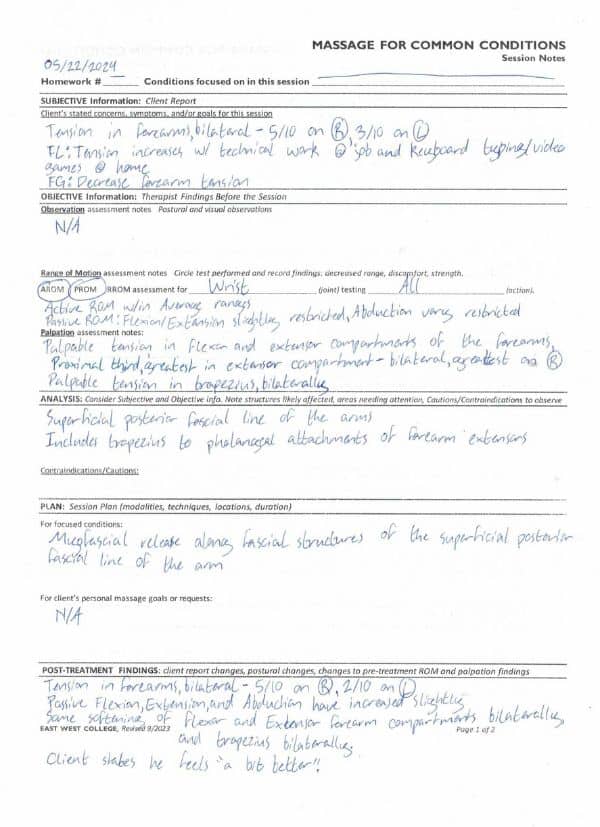 MASSAGE FOR COMMON CONDITIONS
Session Notes
05/22/2024
Homework # ____ Conditions focused on in this session ____
SUBJECTIVE Information: Client Report
Client's stated concerns, symptoms, and/or goals for this session
Tension in forearms, bilateral - 5/10 on R, 3/10 on L
FL: Tension increases w/ technical work @ job and Keyboard typing/video
games @ home
FG: Decrease forearm tension
OBJECTIVE Information: Therapist Findings Before the Session
Observation assessment notes Postural and visual observations
N/A
Range of Motion assessment notes Circle test performed and record findings: decreased range, discomfort, strength.
AROM PROM RROM assessment for Wrist (joint) testing All (action).
Active ROM w/in Average ranges
Passive ROM: Flexion/Extension slightly restricted, Abduction very restricted
Palpation assessment notes:
Palpable tension in flexor and extensor compartments of the forearms,
Proximal third, greatest in extensor compartment - bilateral, greatest on R
Palpable tension in trapezius, bilaterally
ANALYSIS: Consider Subjective and Objective info. Note structures likely affected, areas needing attention, Cautions/Contraindications to observe
Superficial posterior fascial line of the arms
Includes trapezius to phalangeal attachments of forearm extensors
Contraindications/Cautions:
PLAN: Session Plan (modalities, techniques, locations, duration)
For focused conditions:
Myofascial release along fascial structures of the superficial posterior
fascial line of the arm
For client's personal massage goals or requests:
N/A
POST-TREATMENT FINDINGS: client report changes, postural changes, changes to pre-treatment ROM and palpation findings
Tension in forearms, bilateral - 5/10 on R, 2/10 on L
Passive Flexion, Extension, and Abduction have increased slightly
Some softening of Flexor and Extensor forearm compartments bilaterally,
EAST WEST COLLEGE, Revised 9/2023 Page 1 of 2
and trapezius bilaterally
Client states he feels "a bit better".